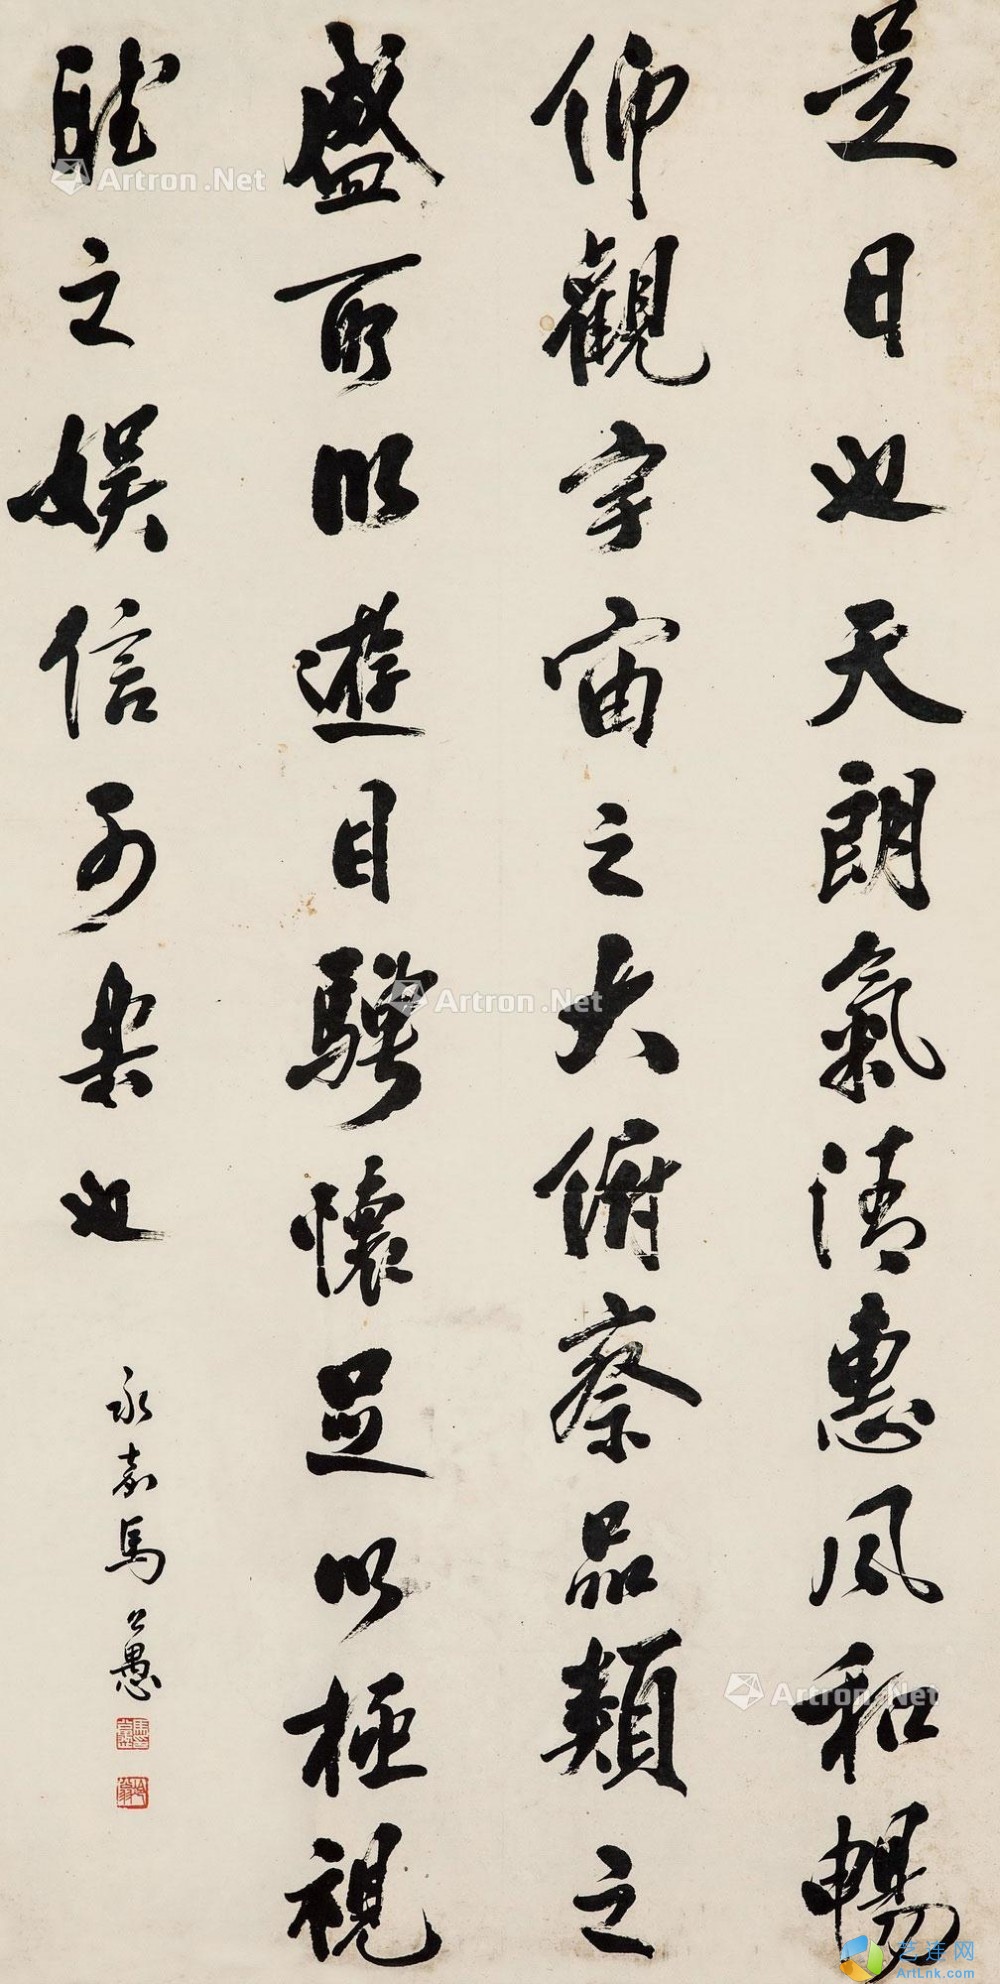 是日也天朗氣清惠風和暢
仰觀宇宙之大俯察品類之
盛所以遊目騁懷足以極視
聽之娛信可樂也
永嘉馬公愚
Artron.Net
Artron.Net
Artron.Net
艺连网
ArtLnk.com